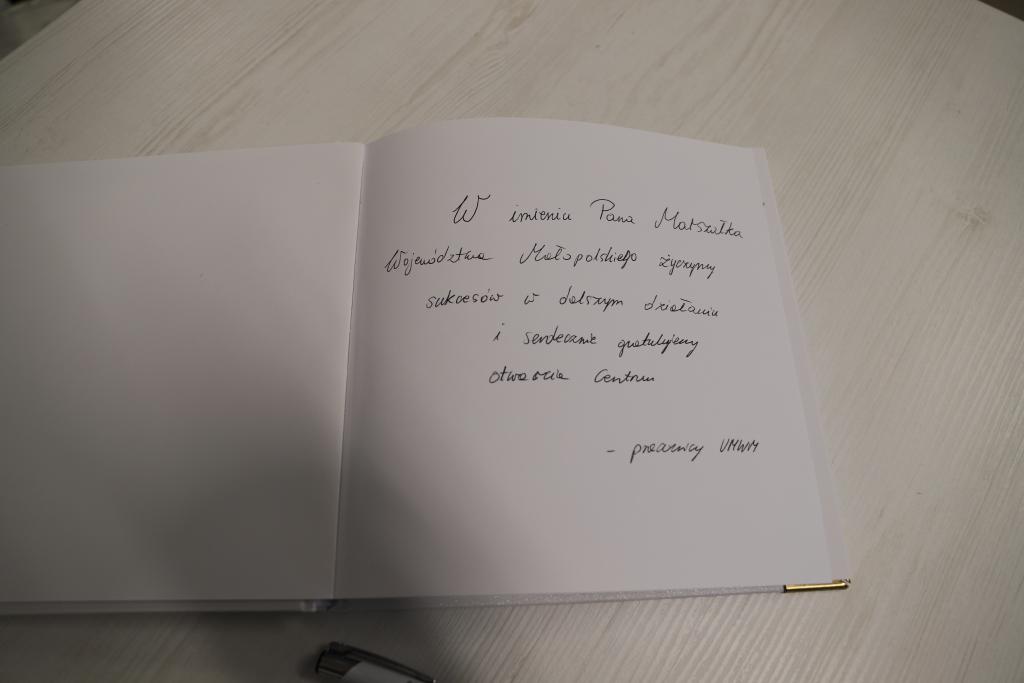 W imieniu Pana Marszałka
Województwa Małopolskiego życzymy
sukcesów w dalszym działaniu
i serdecznie gratulujemy
otwarcia Centrum
- pracownicy UMWM